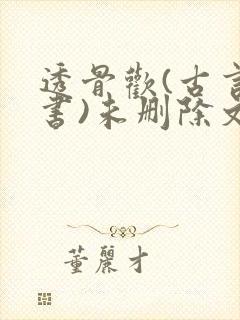 透骨歡(古言
書)未刪除文
董麗才